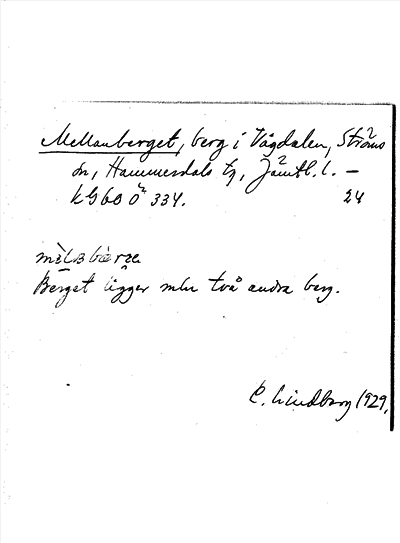 Mellanberget, berg i Vågdalen, Ströms
sn, Hammerdals tg, Jämtl. l. —
KGbO Ö 334. 24
Berget ligger mln två andra berg.
C. Lindberg 1929.